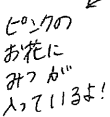 ピンクの
お花に
みつが
入っているよ!